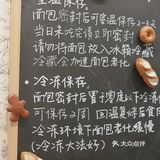 室温保存:
面包密封后可室温保存2-3
当日未吃完请立即密封
请勿将面包放入冰箱冷藏
冷藏会加速面包老化
·冷冻保存:
面包密封后置于零度以下冷冻
可保存2周 回温复烤后食用
冷冻环境下面包老化缓慢
(冷冻大法好)
大众点评